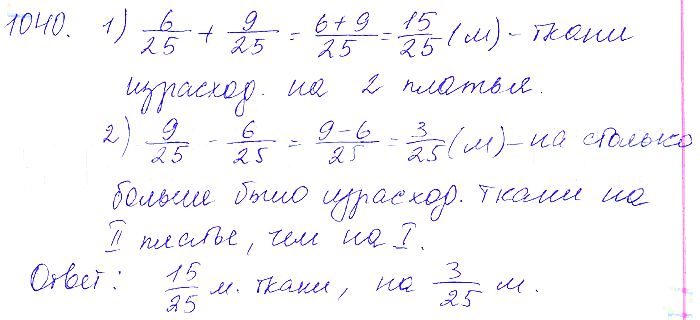 1040. 1) 6/25 + 9/25 = (6+9)/25 = 15/25 (м) - ткани
израсход. на 2 платья.
2) 9/25 - 6/25 = (9-6)/25 = 3/25 (м) - на столько
больше было израсход. ткани на
II платье, чем на I.
Ответ: 15/25 м. ткани, на 3/25 м.